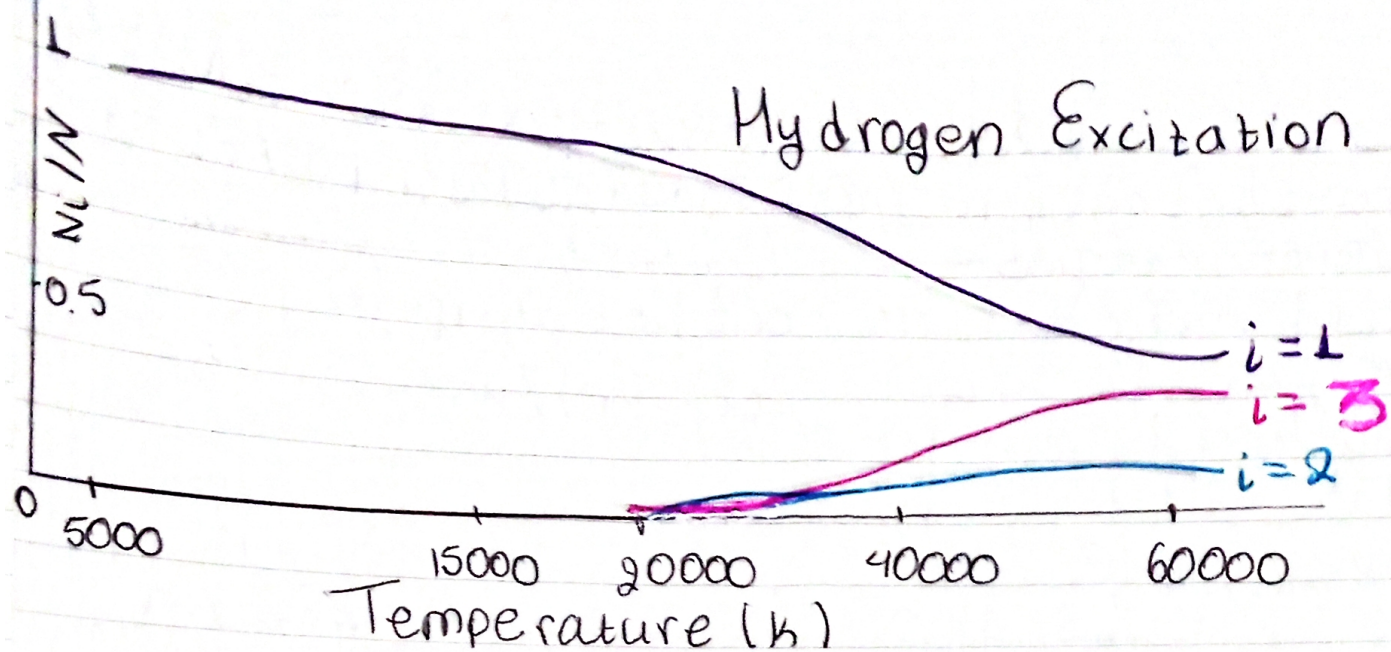 1
Hydrogen Excitation
Ni/N
0.5
i=1
i=3
i=2
0
5000
15000
20000
40000
60000
Temperature (K)